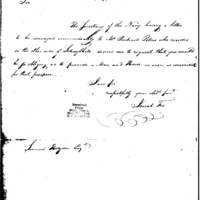 Sir
The Secretary of the Navy having a letter
to be conveyed immediately to Mr Richard Peters who resides
on the other side of Schuylkill desires me to request that you would
be so obliging as to provide a Man and Horse as soon as convenient
for that purpose.
I am Sir
respectfully your obd. servt.
Samuel Hodgdon Esqr.